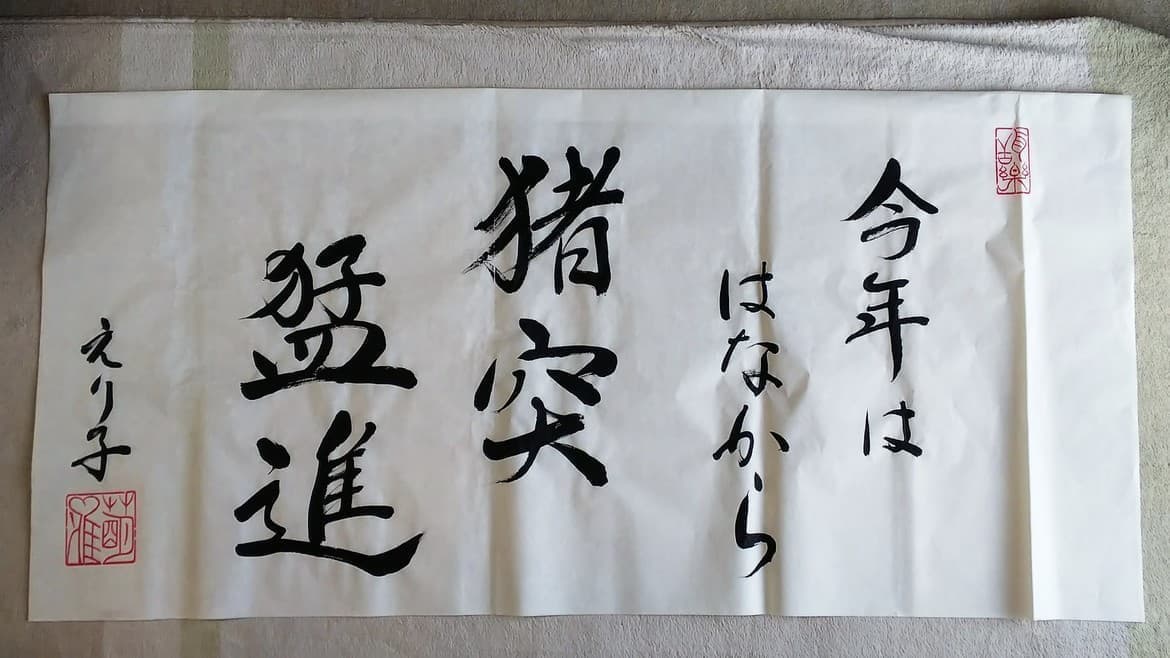 今年は
はなから
猪突
猛進
えり子